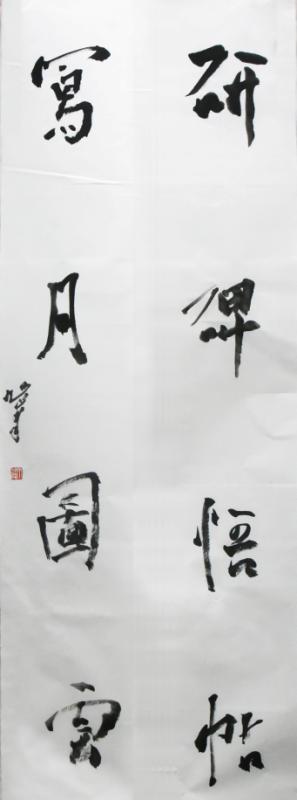 研碑悟帖
寫月圖雲